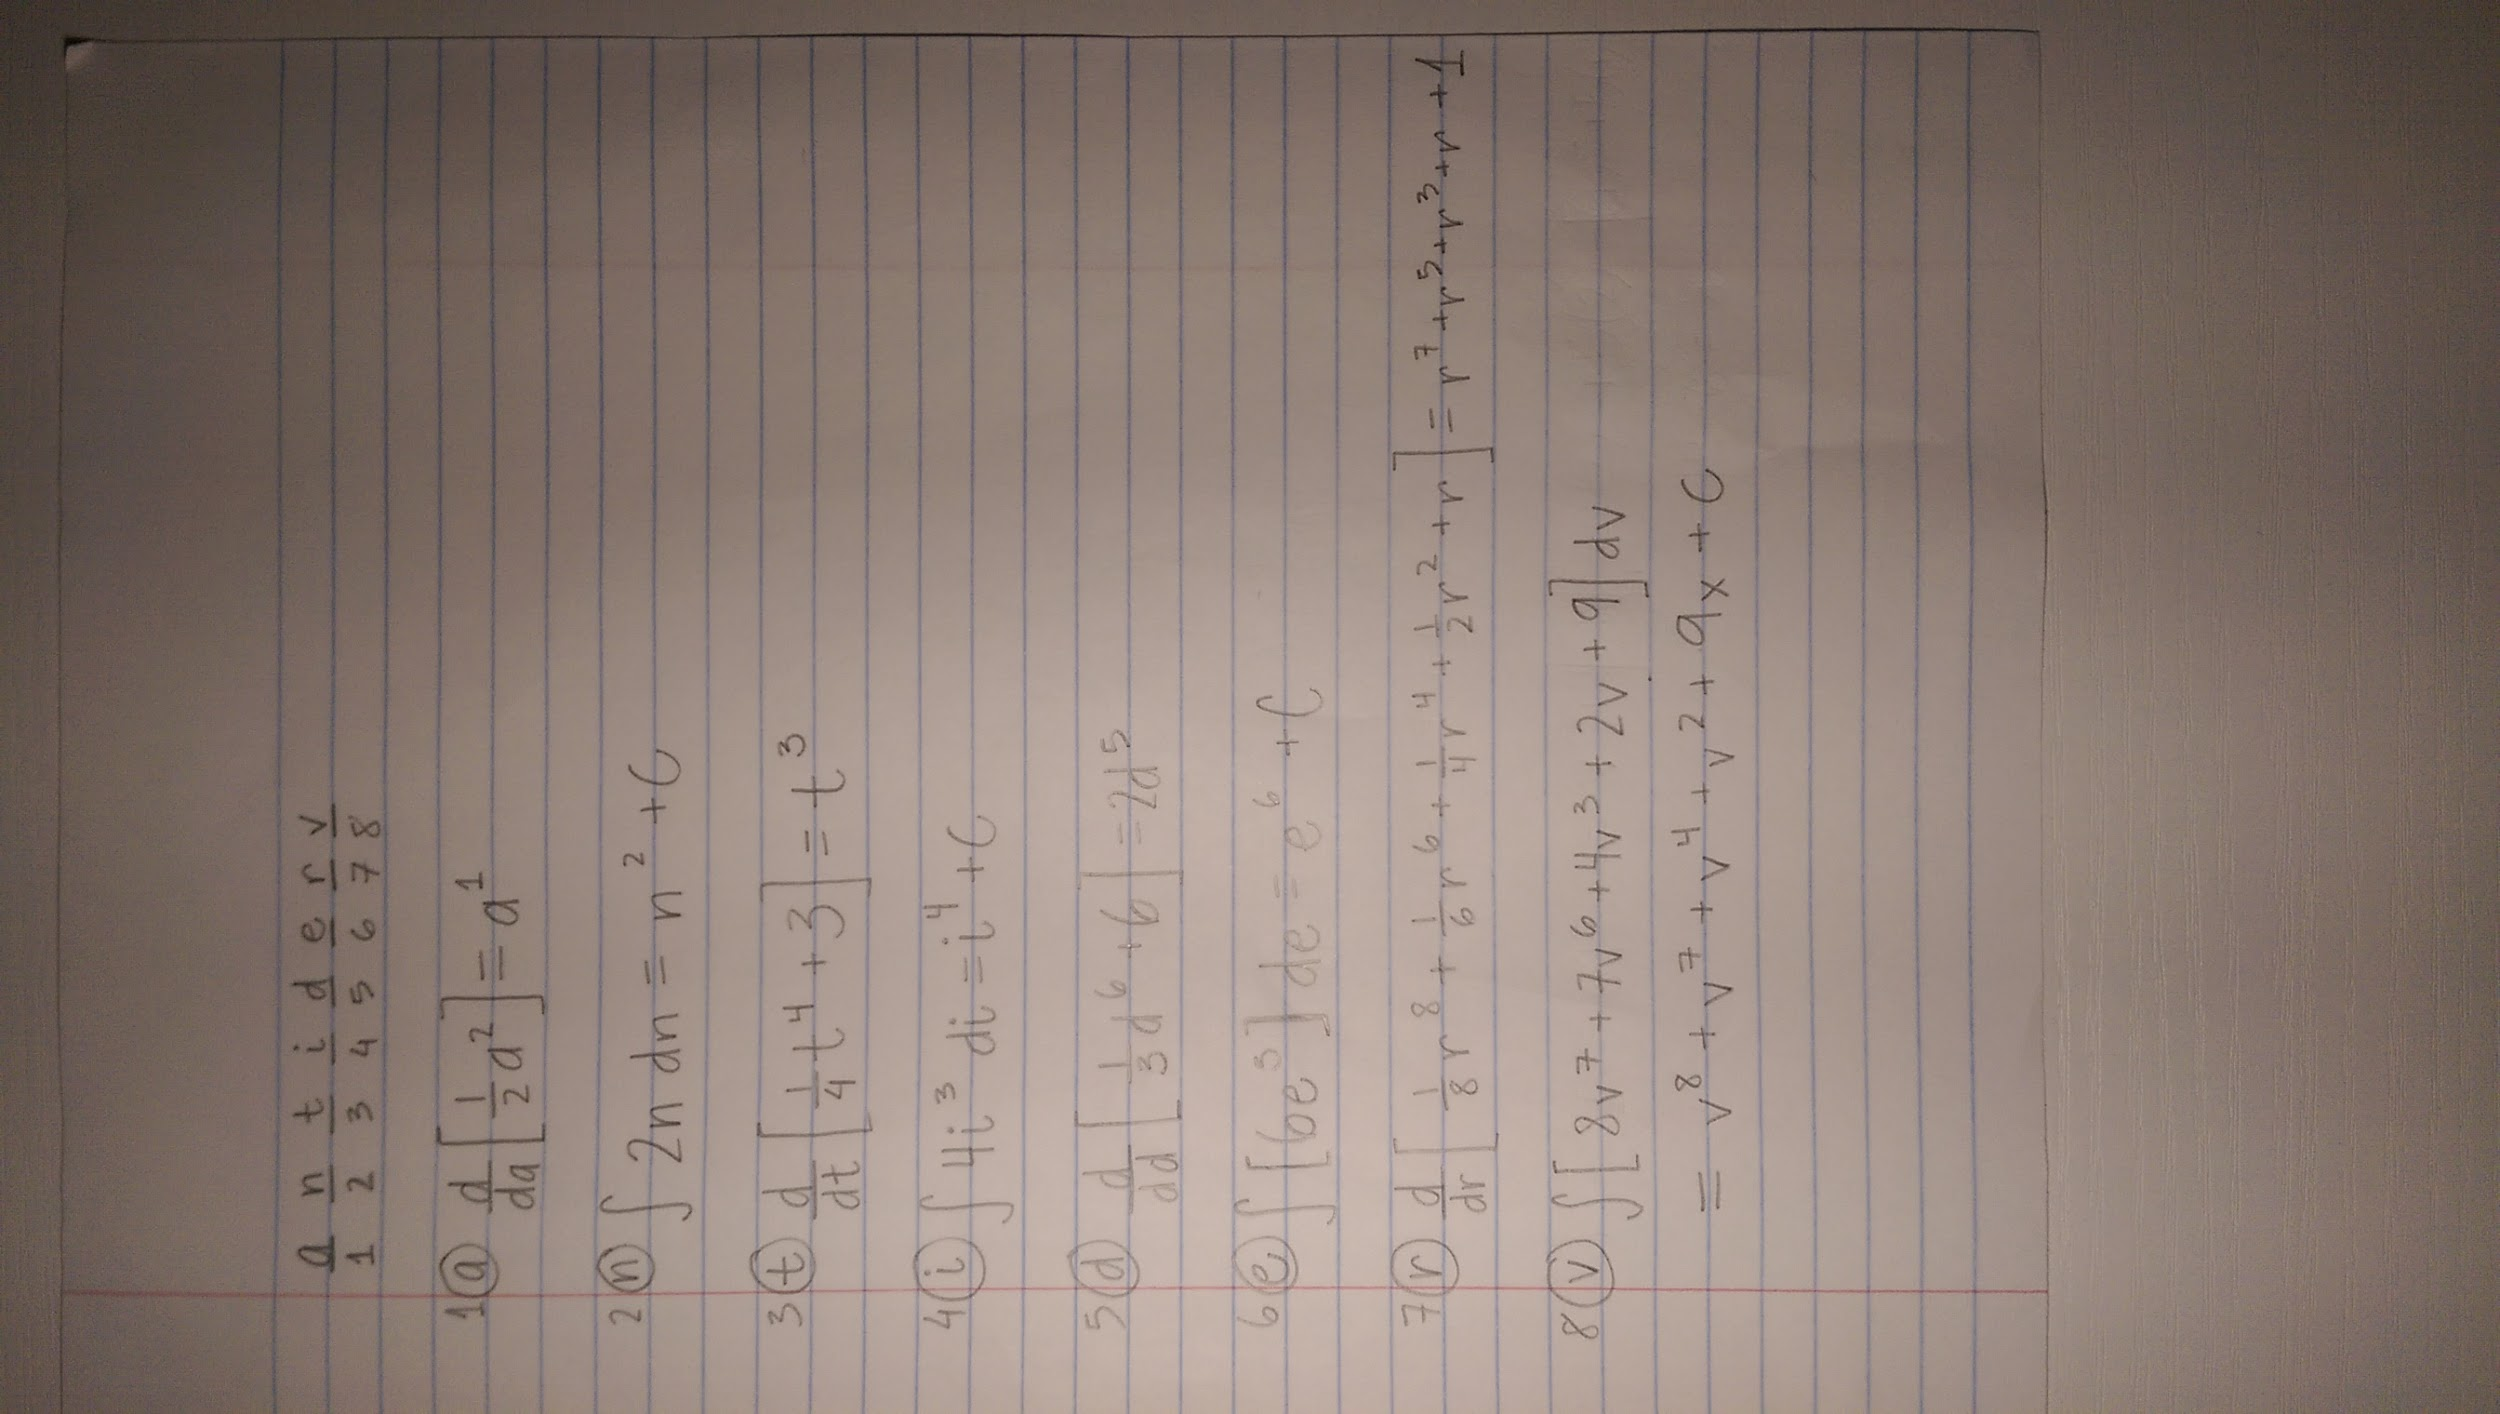 a n t i d e r v
1 2 3 4 5 6 7 8
1 ⓐ d/da [1/2 a²] = a¹
2 ⓝ ∫ 2n dn = n² + C
3 ⓣ d/dt [1/4 t⁴ + 3] = t³
4 ⓘ ∫ 4i³ di = i⁴ + C
5 ⓓ d/dd [1/3 d⁶ + 6] = 2d⁵
6 ⓔ ∫ [6e⁵] de = e⁶ + C
7 ⓡ d/dr [1/8 r⁸ + 1/6 r⁶ + 1/4 r⁴ + 1/2 r² + r] = r⁷ + r⁵ + r³ + r + 1
8 ⓥ ∫ [8v⁷ + 7v⁶ + 4v³ + 2v + 9] dv
= v⁸ + v⁷ + v⁴ + v² + 9x + C